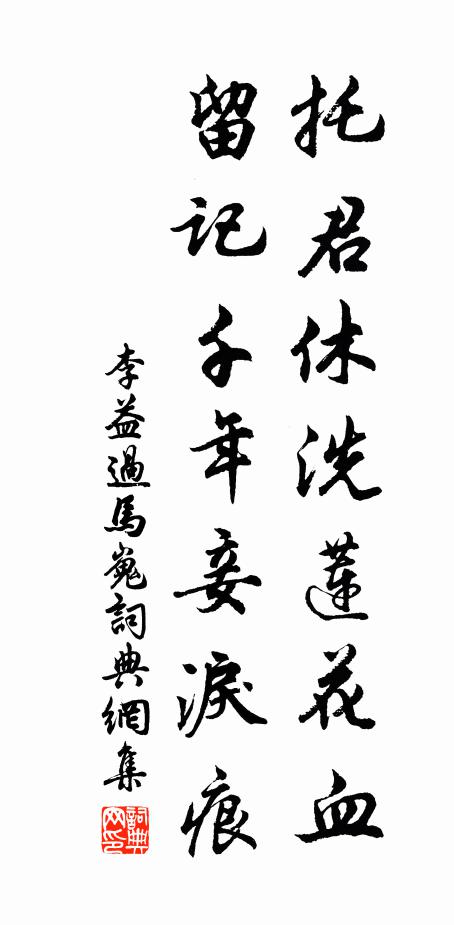 托君休洗蓮花血
留記千年妾淚痕
李益過馬嵬詞典網集
詞典
网印